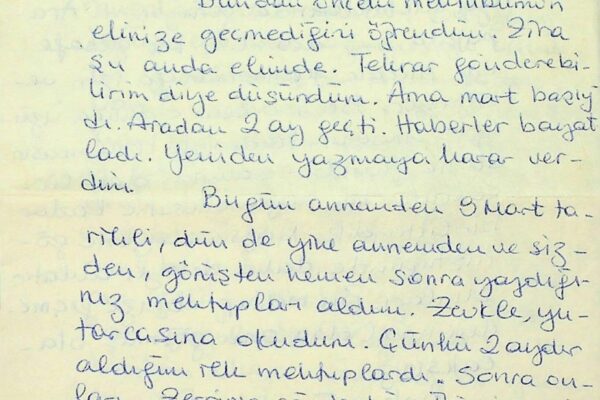 Bundan önceki mektubumun
elinize geçmediğini öğrendim. Zira
şu anda elimde. Tekrar gönderebi-
lirim diye düşündüm. Ama mart başıy
dı. Aradan 2 ay geçti. Haberler bayat
ladı. Yeniden yazmaya karar ver-
dim.
Bugün annemden 9 Mart ta-
rihli, dün de yine annemden ve siz-
den, görüşten hemen sonra yazdığı-
nız mektupları aldım. Zevkle, yu-
tarcasına okudum. Çünkü 2 aydır
aldığım ilk mektuplardı. Sonra on-
ları